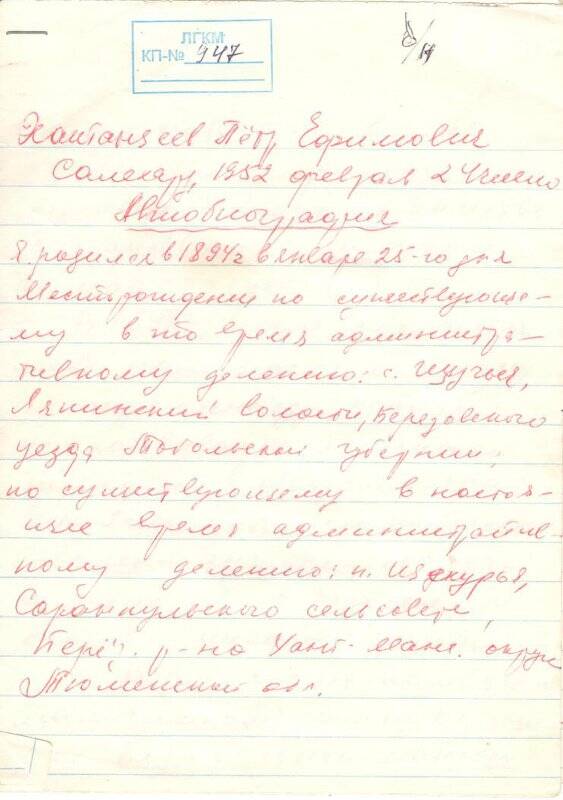 ЛГКМ
КП-№ 947
Хатанзеев Пётр Ефимович
Салехард, 1952 февраль 2 число
Автобиография
Я родился в 1894г в январе 25-го дня
Месторождении по существующе-
му в то время администра-
тивному делению: с. Щучья,
Ляпинский волости, Березовского
уезда Тобольской губернии,
по существующему в настоя-
щие время административ-
ному делению: п. Щекурья,
Саранпульского сельсовета,
Берёз. р-на Хант-Манс. округа
Тюменский обл.